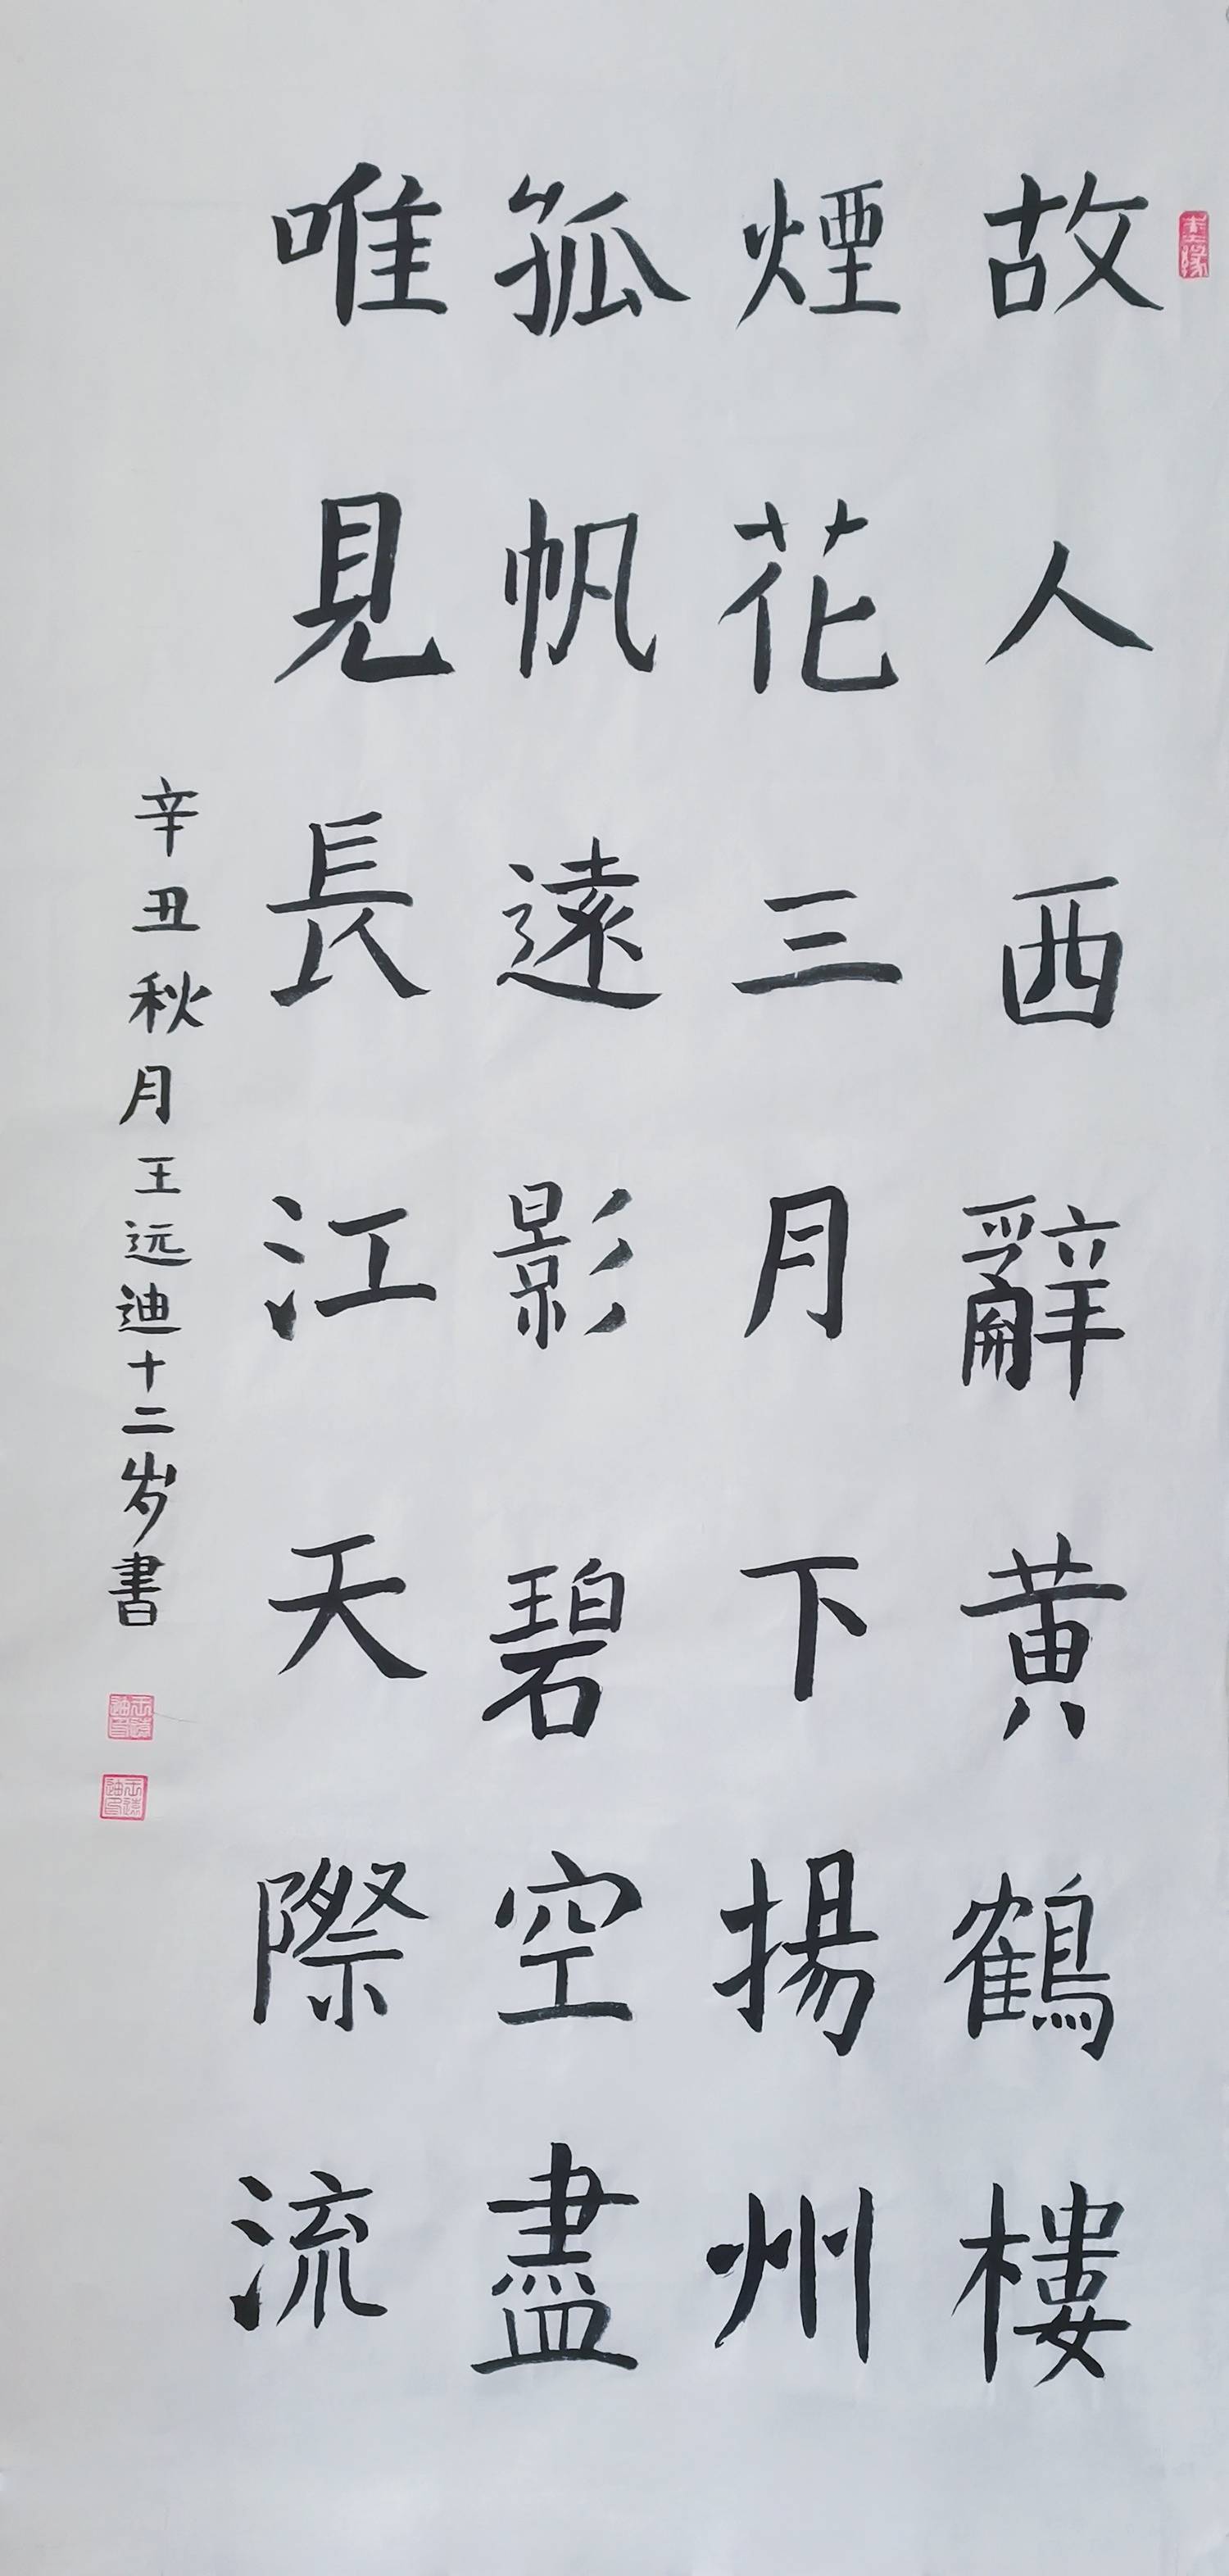 故人西辭黄鶴樓
煙花三月下揚州
孤帆遠影碧空盡
唯見長江天際流
辛丑秋月王远迪十二岁書